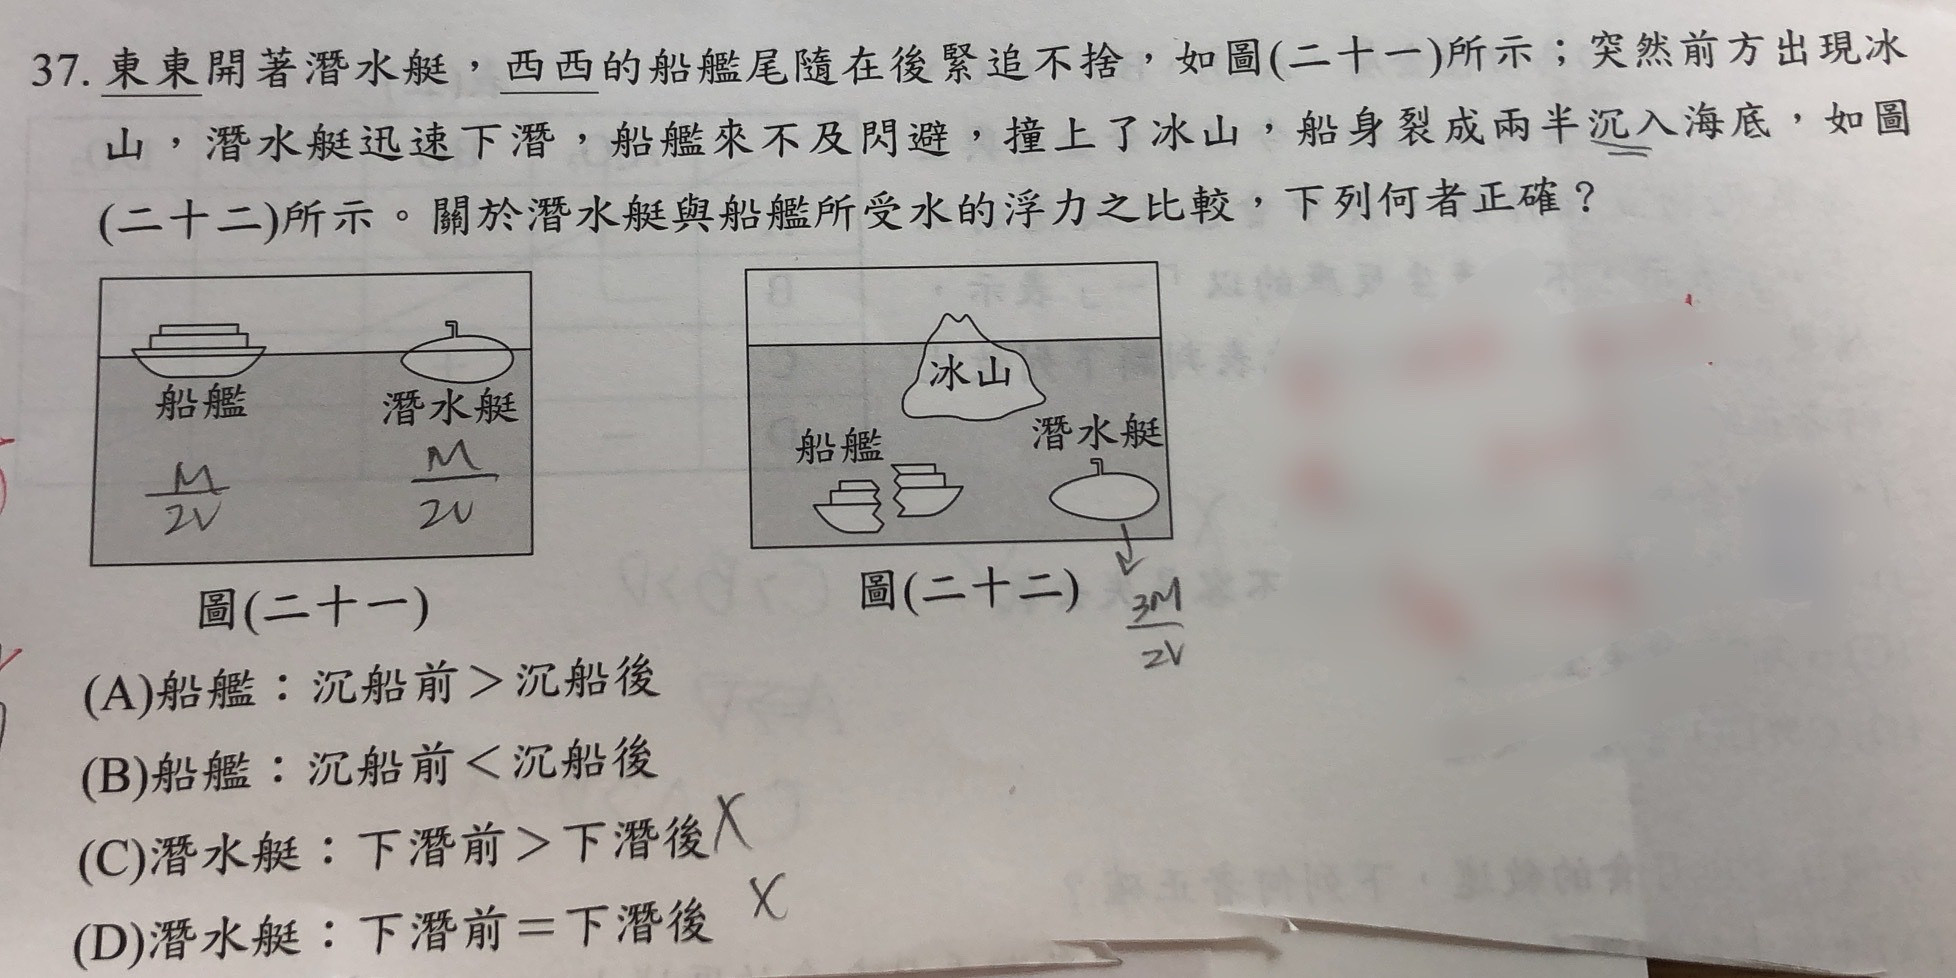 37. 東東開著潛水艇，西西的船艦尾隨在後緊追不捨，如圖(二十一)所示；突然前方出現冰
山，潛水艇迅速下潛，船艦來不及閃避，撞上了冰山，船身裂成兩半沉入海底，如圖
(二十二)所示。關於潛水艇與船艦所受水的浮力之比較，下列何者正確？
船艦
潛水艇
M/2V
M/2V
圖(二十一)
冰山
船艦
潛水艇
圖(二十二)
3M/2V
(A)船艦：沉船前＞沉船後
(B)船艦：沉船前＜沉船後
(C)潛水艇：下潛前＞下潛後 X
(D)潛水艇：下潛前＝下潛後 X